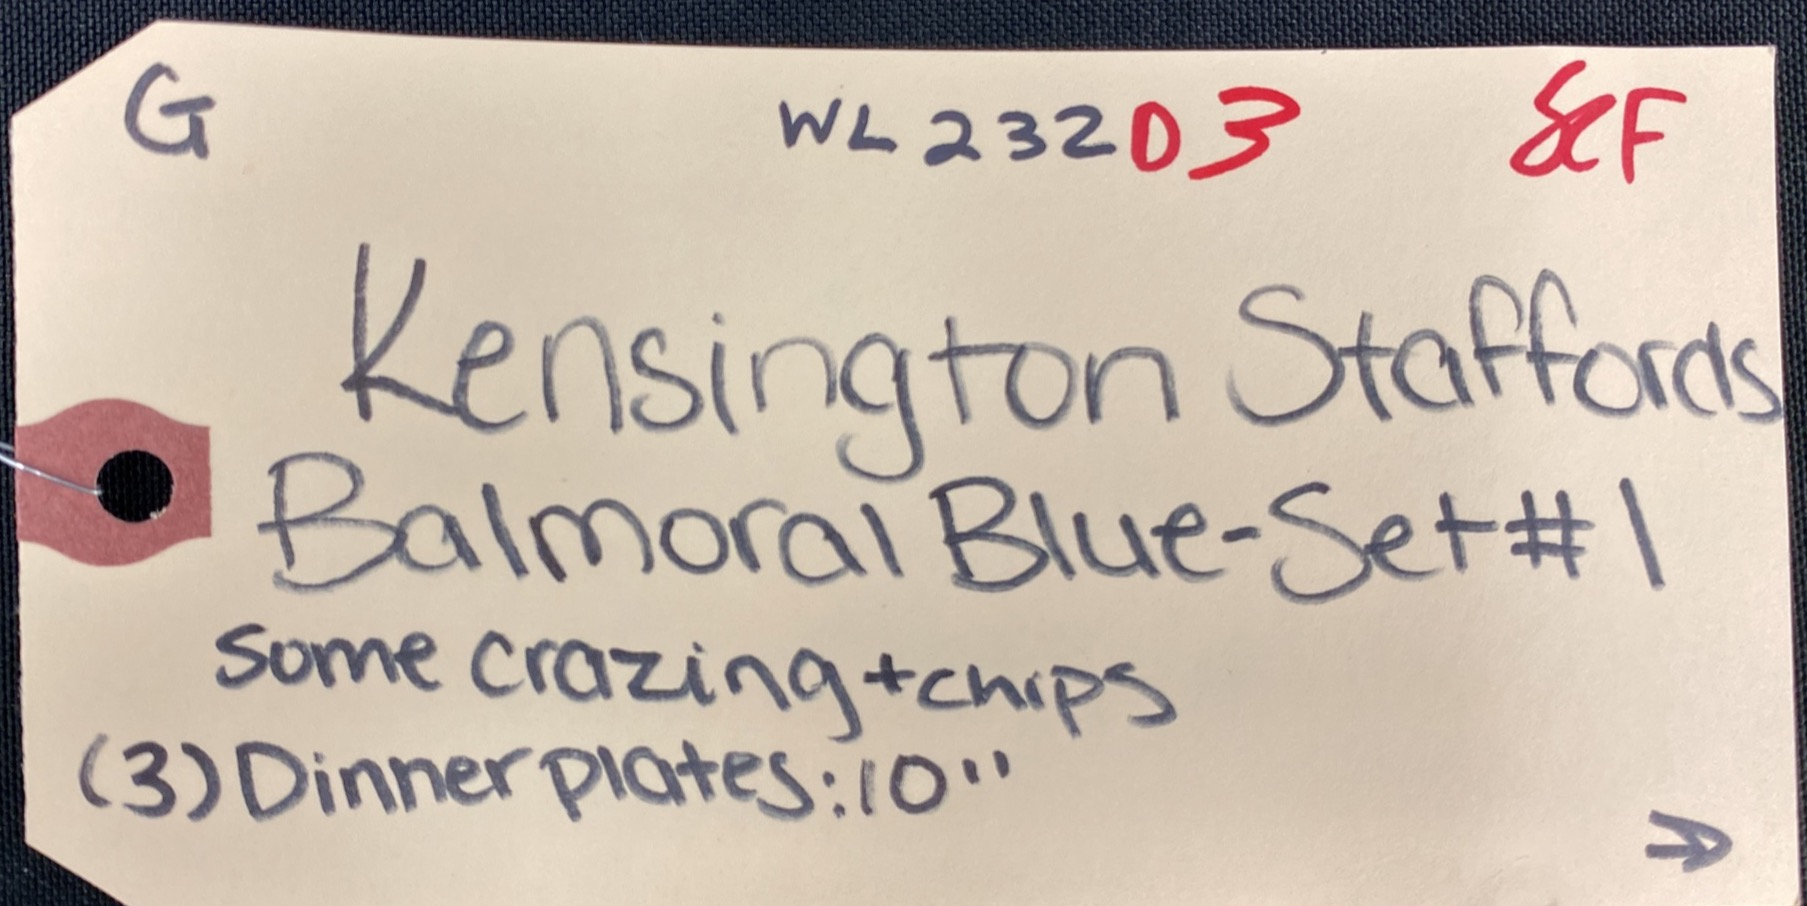 G WL232D3 SCF
Kensington Staffords
Balmoral Blue-Set#1
some crazing+chips
(3) Dinner plates: 10"
→